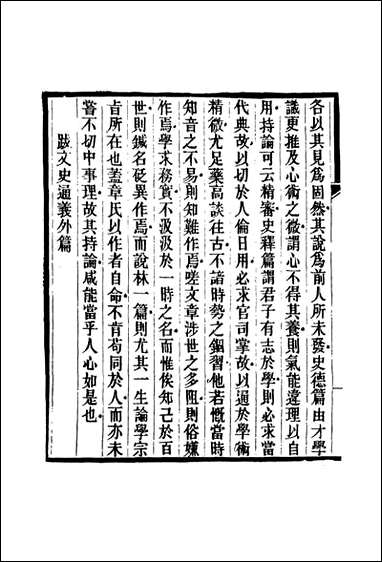 各以其見爲固然其說爲前人所未發史德篇由才學
識更推及心術之微謂心不得其養則氣能違理以自
用持論可云精審史釋篇謂君子有志於學則必求當
代典故以切於人倫日用必求官司掌故以通於學術
精微尤足藥高談往古不諳時勢之錮習他若慨當時
知音之不易則知難作焉嗟文章涉世之多阻則俗嫌
作焉學求務實不汲汲於一時之名而惟俟知己於百
世則鍼名砭異作焉而說林一篇則尤其一生論學宗
旨所在也蓋章氏以作者自命不肯苟同於人而亦未
嘗不切中事理故其持論咸能當乎人心如是也
跋文史通義外篇